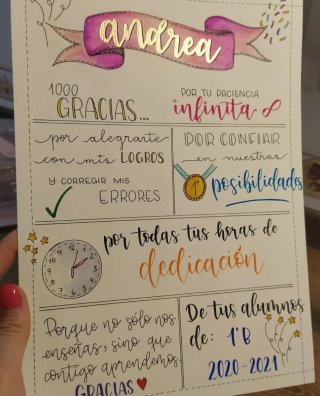 andrea
1000
GRACIAS...
POR TU PACIENCIA
infinita
por alegrarte
con mis LOGROS
Y CORREGIR MIS
ERRORES
POR CONFIAR
en nuestras
1
posibilidades
por todas tus horas de
dedicación
Porque no sólo nos
enseñas, sino que
contigo aprendemos.
GRACIAS
De tus alumnos
de: 1ºB
2020-2021